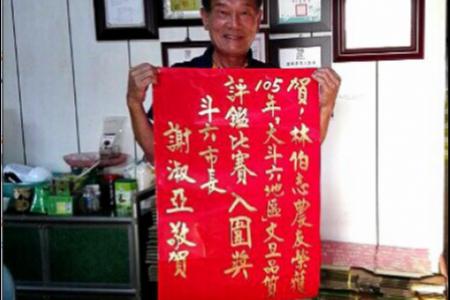 賀！林伯志農友榮獲
105年「大斗六地區」文旦品質
評鑑比賽入圍獎
斗六市長
謝淑亞敬賀